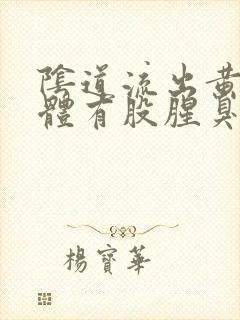 陰道流出黄
體有股腥臭
楊寶華